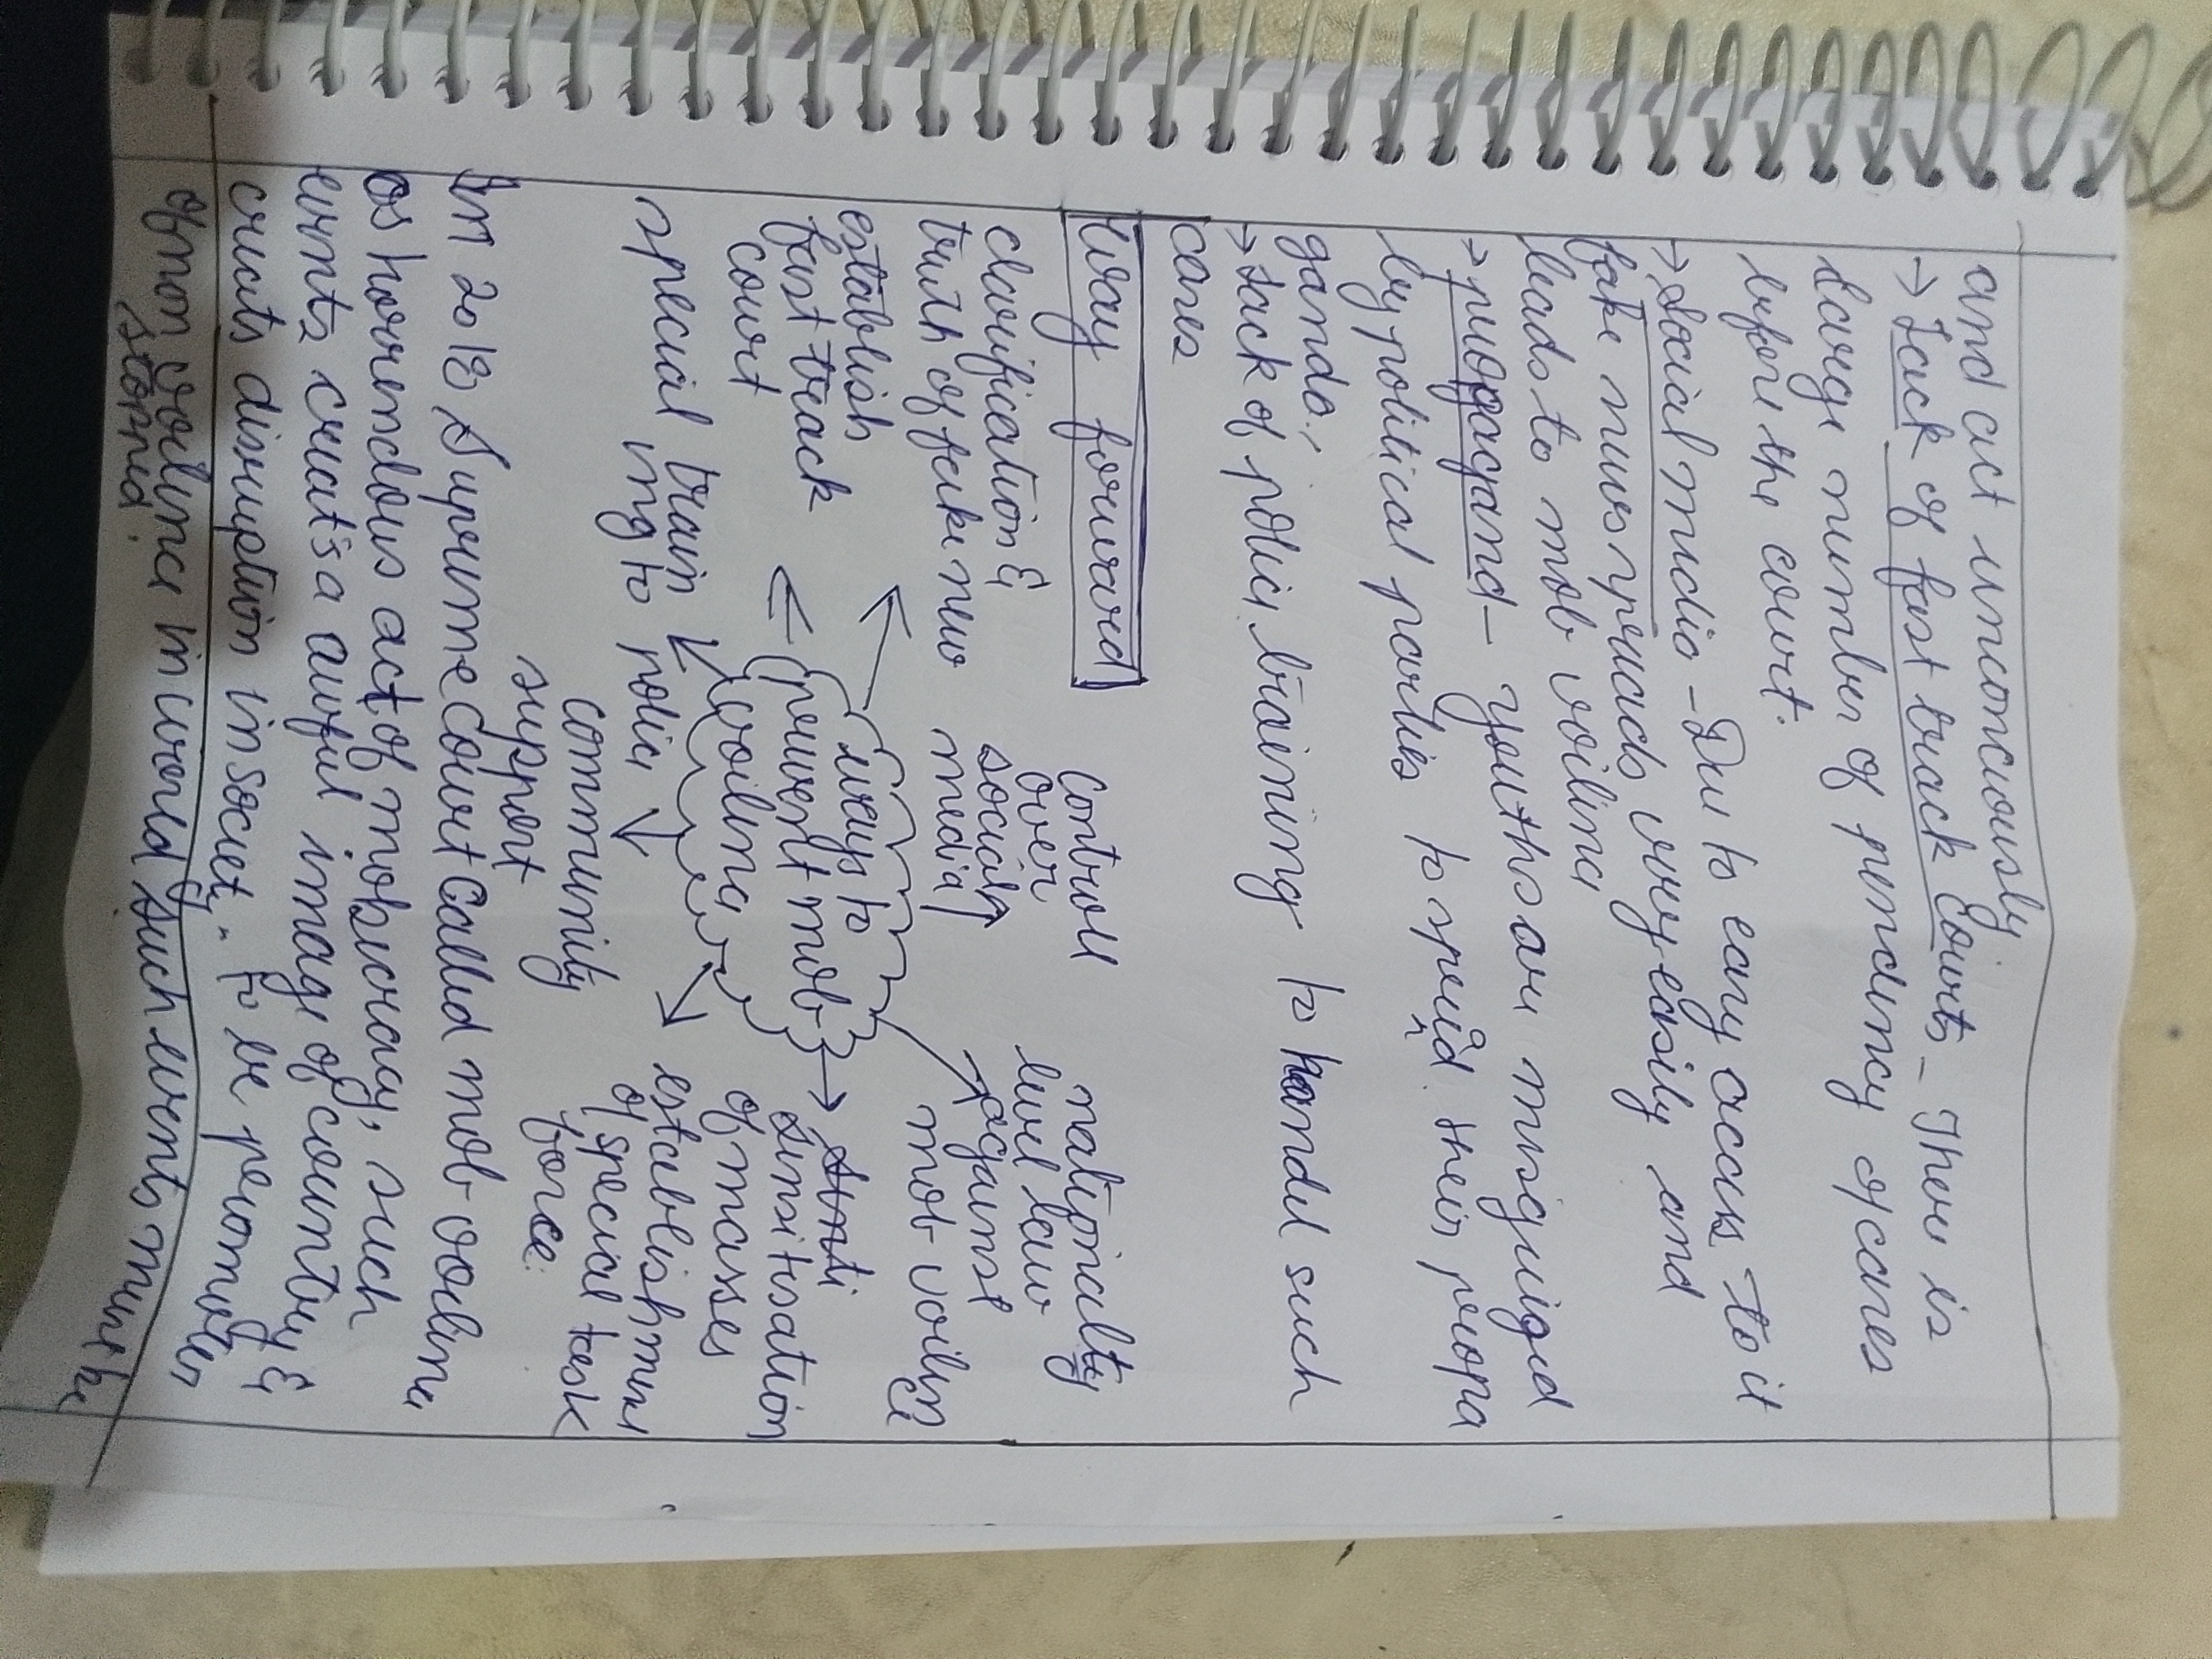 and act unconciously
→ Lack of fast track Courts - There is
large number of pendency of cases
before the court.
→ Social media - Due to easy access to it
fake news spreads very easily and
leads to mob voilince
→ propaganda - youths are misguided
by political parties to spread their propa
ganda.
→ Lack of police training to handel such
cases
Way forward
clarification &
truth of fake news
establish
fast track
court
special train
ing to police
Controll
over
social
media
nationally
level law
against
mob voilen
ce
ways to
prevent mob
voilince
Sensitisation
of masses
establishment
of special task
force
community
support
In 2018 Supreme Court called mob voilence
as horrendous act of mobocracy, such
events creat's a awful image of country &
creats disruption in society. To be promoter
of non voilence in world such events must be
stopped.